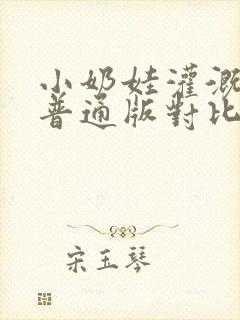 小奶娃灌溉
普通版對比
宋玉琴